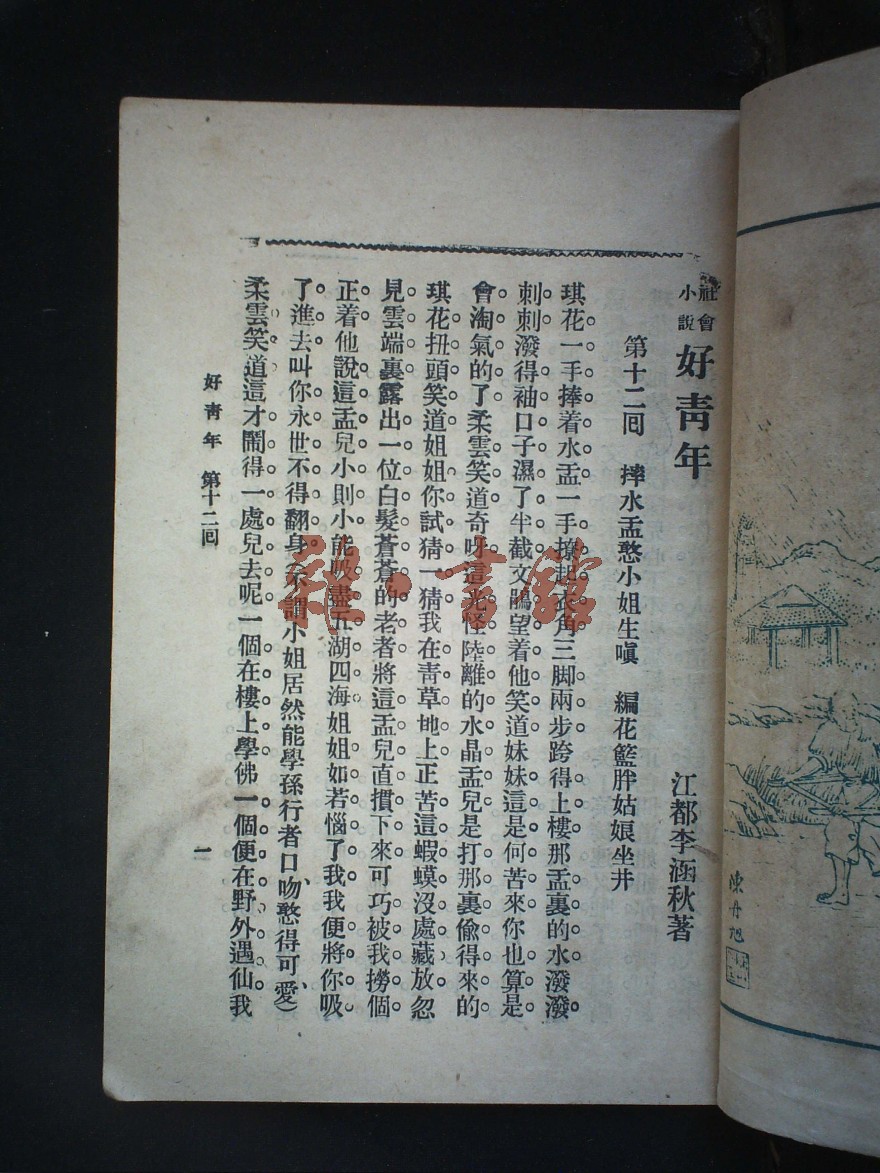 社會
小說
好青年
江都李涵秋著
第十二回 摔水盂憨小姐生嗔 編花籃胖姑娘坐井
琪花一手捧着水盂一手撩起衣角三脚兩步跨得上樓那盂裏的水潑潑
刺刺潑得袖口子濕了半截文鵑望着他笑道妹妹這是何苦來你也算是
會淘氣的了柔雲笑道奇呀這光怪陸離的水晶盂兒是打那裏偸得來的
琪花扭頭笑道姐姐你試猜一猜我在靑草地上正苦這蝦蟆沒處藏放忽
見雲端裏露出一位白髮蒼蒼的老者將這盂兒直摜下來可巧被我撈個
正着他說這盂兒小則小能吸盡五湖四海姐姐如若惱了我我便將你吸
了進去叫你永世不得翻身(不謂小姐居然能學孫行者口吻憨得可愛)
柔雲笑道這才鬧得一處兒去呢一個在樓上學佛一個便在野外遇仙我
好靑年 第十二回
一
陳丹旭
雜·書館